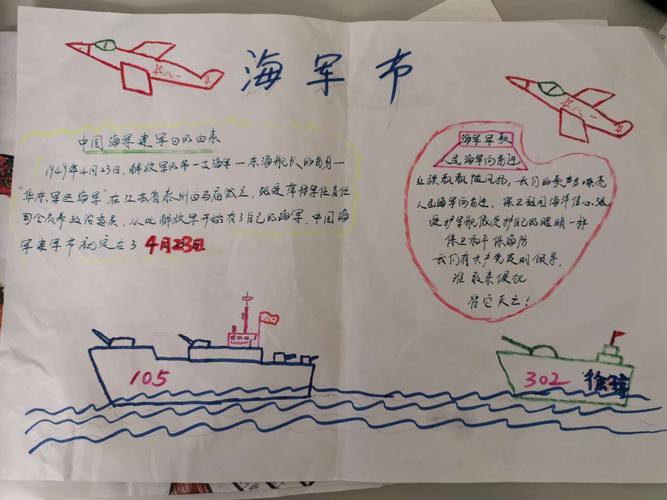 海军节
八一
八一
中国海军建军日的由来
1949年4月23日,解放军的第一支海军—东海舰队的前身—
"华东军区海军"在江苏省泰州白马庙成立,张爱萍任司令
员兼政治委员,从此解放军开始有了自己的海军,中国海
军建军节就定在了4月23日
海军军歌
人民海军向前进
红旗飘飘随风扬,我们的歌声多嘹亮
人民海军向前进,保卫祖国海洋信心强
爱护军舰像爱护自己的眼睛一样
保卫和平保海防
我们有共产党英明领导,
谁敢来侵犯
管它灭亡!
105
302